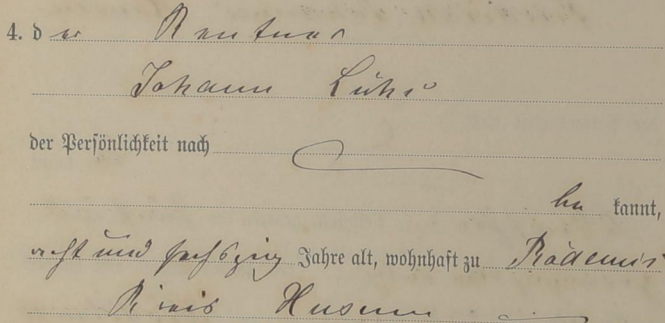 4. der Rentner
Johann Lühr
der Persönlichkeit nach
be kannt,
acht und sechszig Jahre alt, wohnhaft zu Rödemis
Kreis Husum